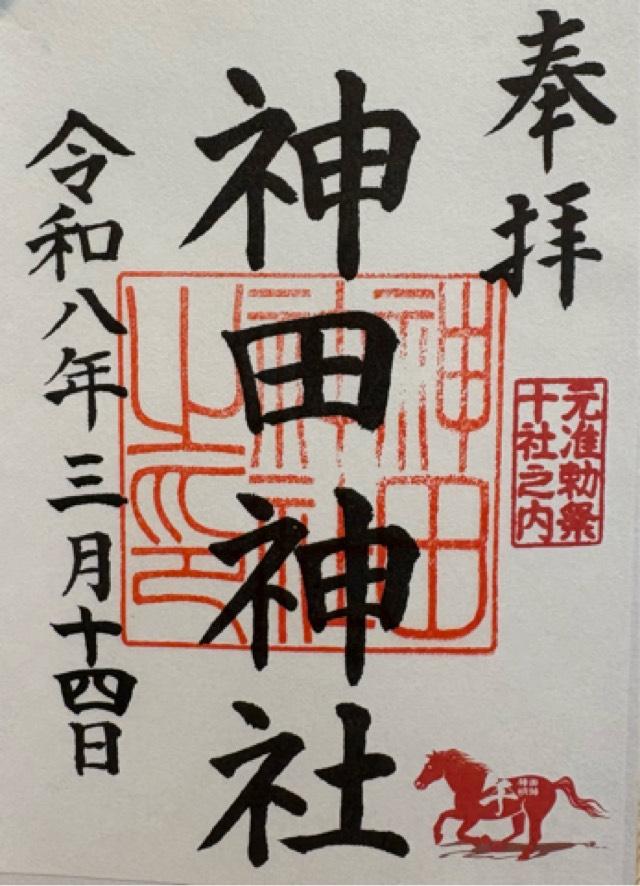 奉拝
元准勅祭
十社之内
神田神社
神田
神社
之印
午
令和八年三月十四日